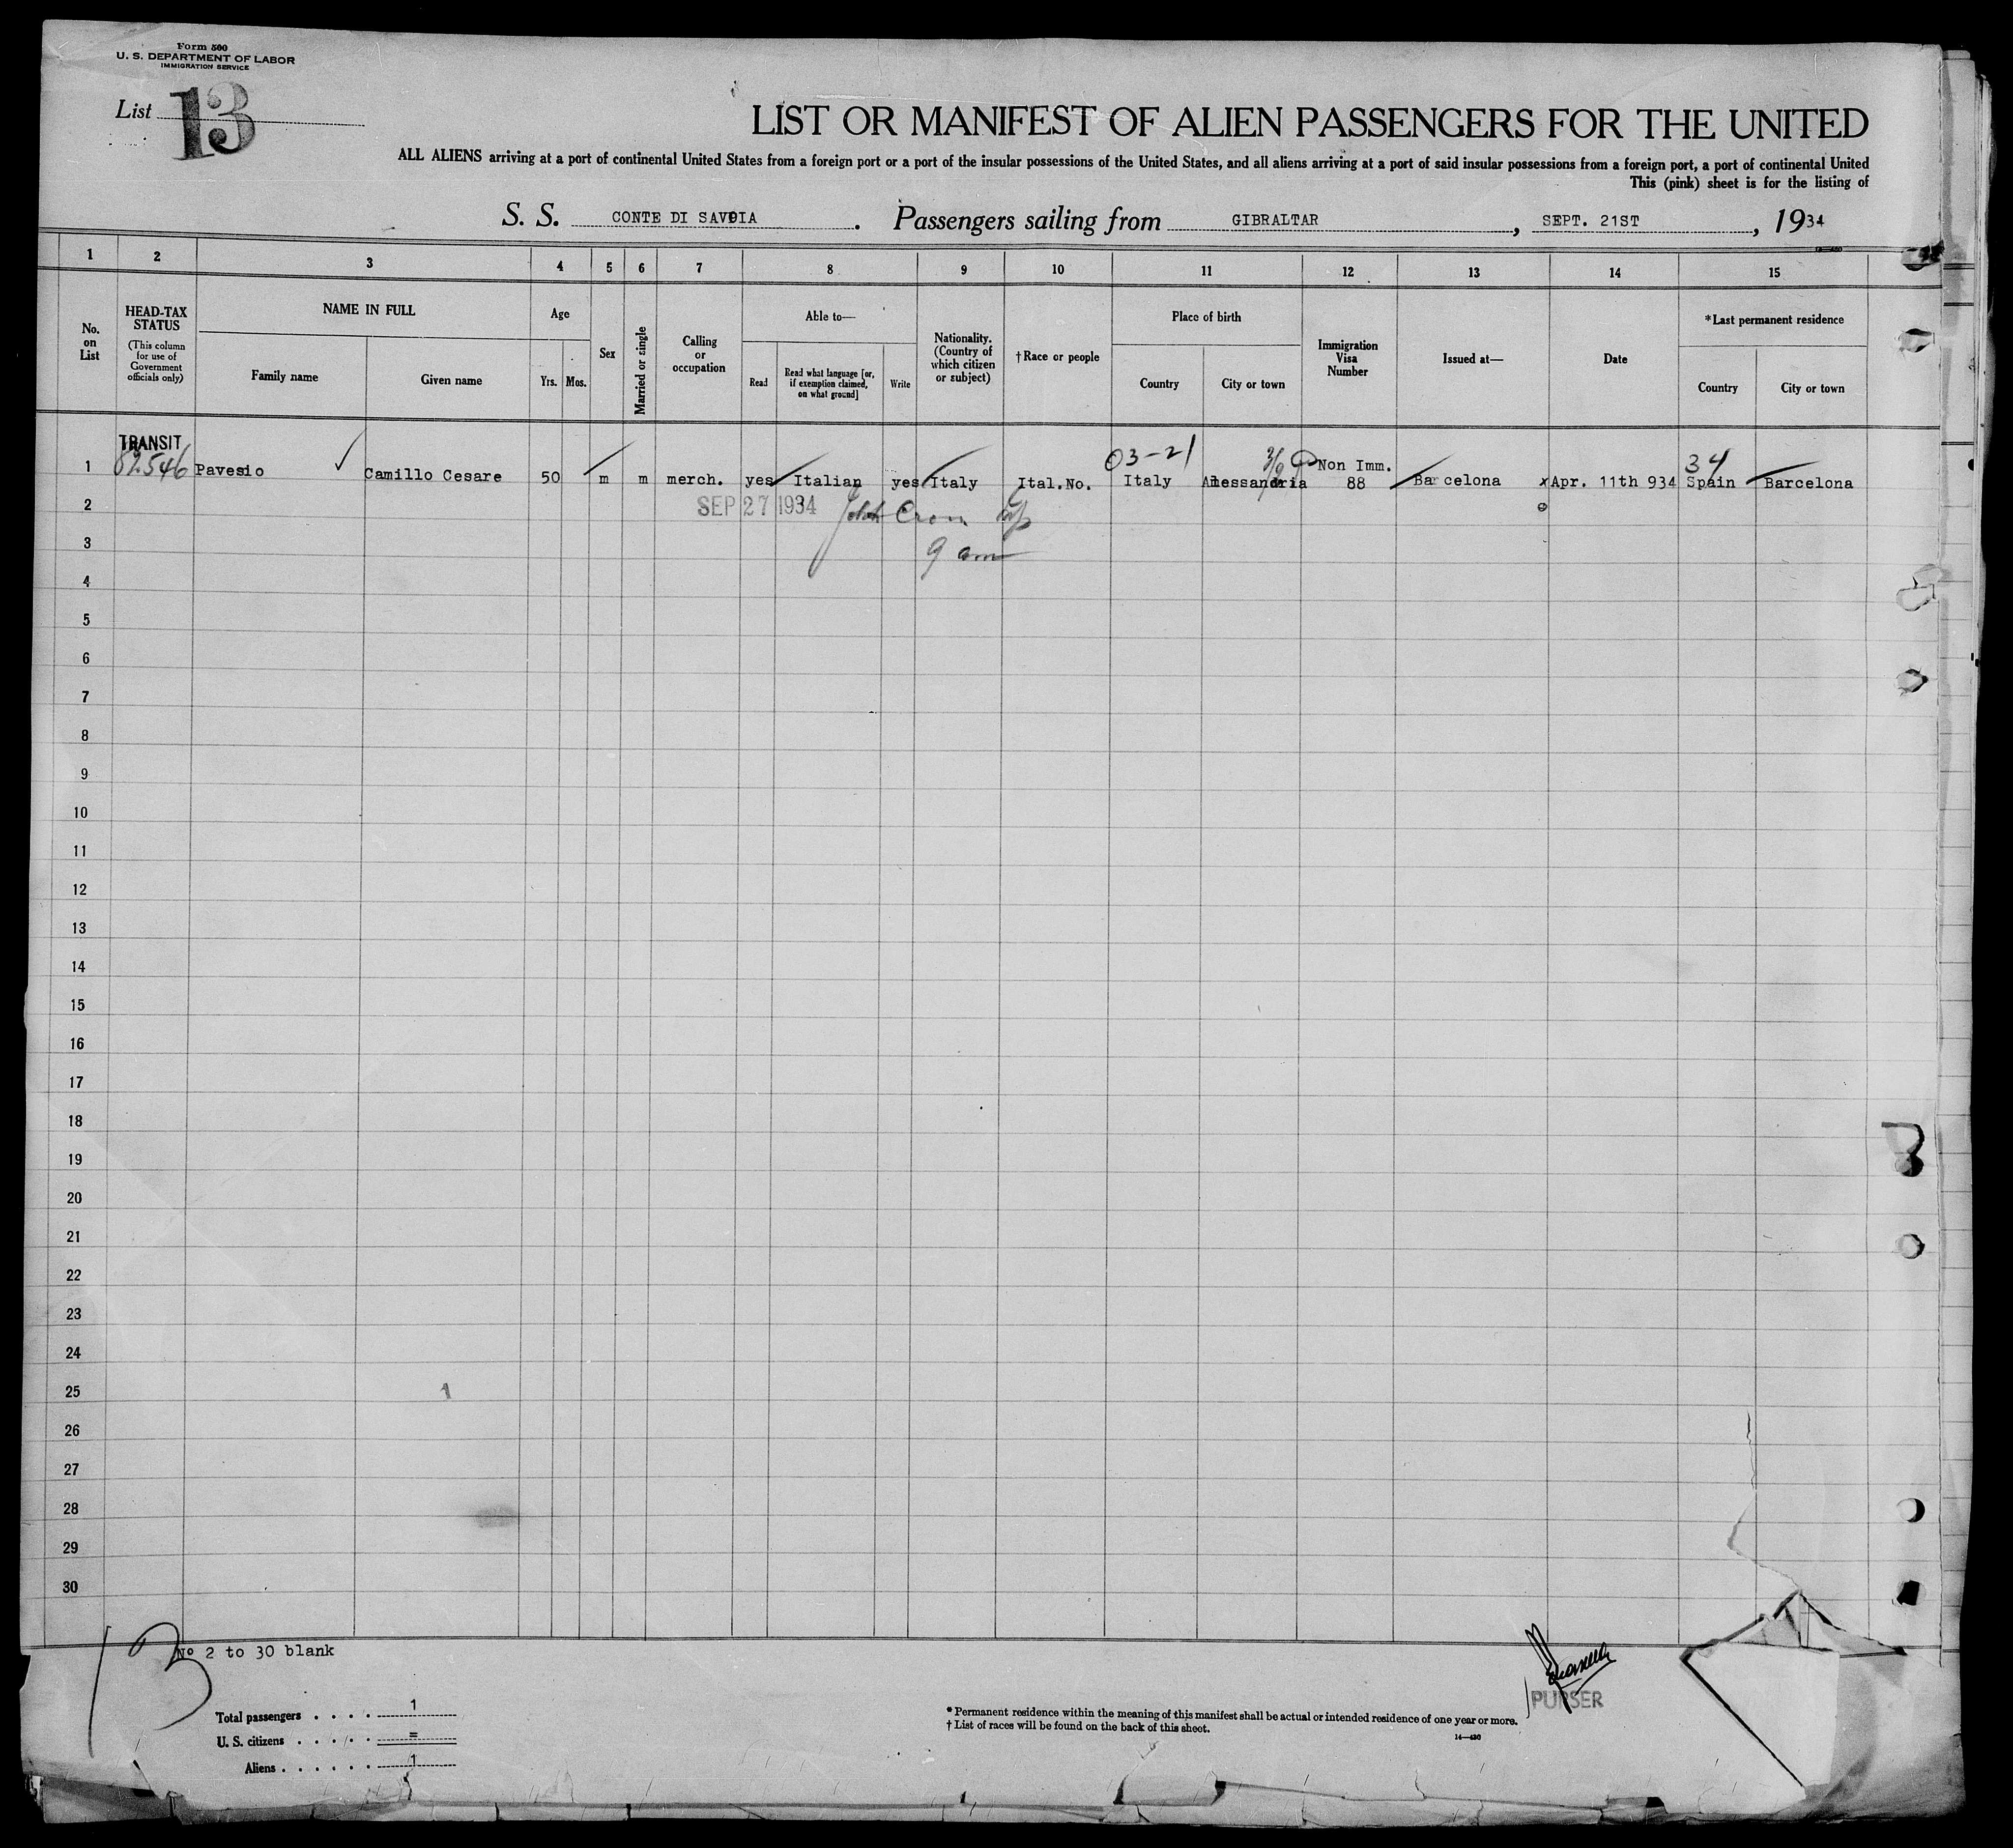 Form 500
U. S. DEPARTMENT OF LABOR
IMMIGRATION SERVICE
List 13
LIST OR MANIFEST OF ALIEN PASSENGERS FOR THE UNITED
ALL ALIENS arriving at a port of continental United States from a foreign port or a port of the insular possessions of the United States, and all aliens arriving at a port of said insular possessions from a foreign port, a port of continental United
This (pink) sheet is for the listing of
S. S. CONTE DI SAVOIA. Passengers sailing from GIBRALTAR, SEPT. 21ST, 1934
1 2 3 4 5 6 7 8 9 10 11 12 13 14 15
No. on List
HEAD-TAX STATUS
(This column for use of Government officials only)
NAME IN FULL
Family name
Given name
Age
Yrs.
Mos.
Sex
Married or single
Calling or occupation
Able to—
Read
Read what language [or, if exemption claimed, on what ground]
Write
Nationality. (Country of which citizen or subject)
†Race or people
Place of birth
Country
City or town
Immigration Visa Number
Issued at—
Date
*Last permanent residence
Country
City or town
TRANSIT
03-21
Non Imm.
34
1 82546 Pavesio Camillo Cesare 50 m m merch. yes Italian yes Italy Ital.No. Italy Alessandria 88 Barcelona xApr. 11th 934 Spain Barcelona
2 SEP 27 1934
3 9 am
4
5
6
7
8
9
10
11
12
13
14
15
16
17
18
19
20
21
22
23
24
25 1
26
27
28
29
30
13
Nº 2 to 30 blank
PURSER
Total passengers . . . . 1
U. S. citizens . . . . . =
Aliens . . . . . . 1
* Permanent residence within the meaning of this manifest shall be actual or intended residence of one year or more.
† List of races will be found on the back of this sheet.
14—430